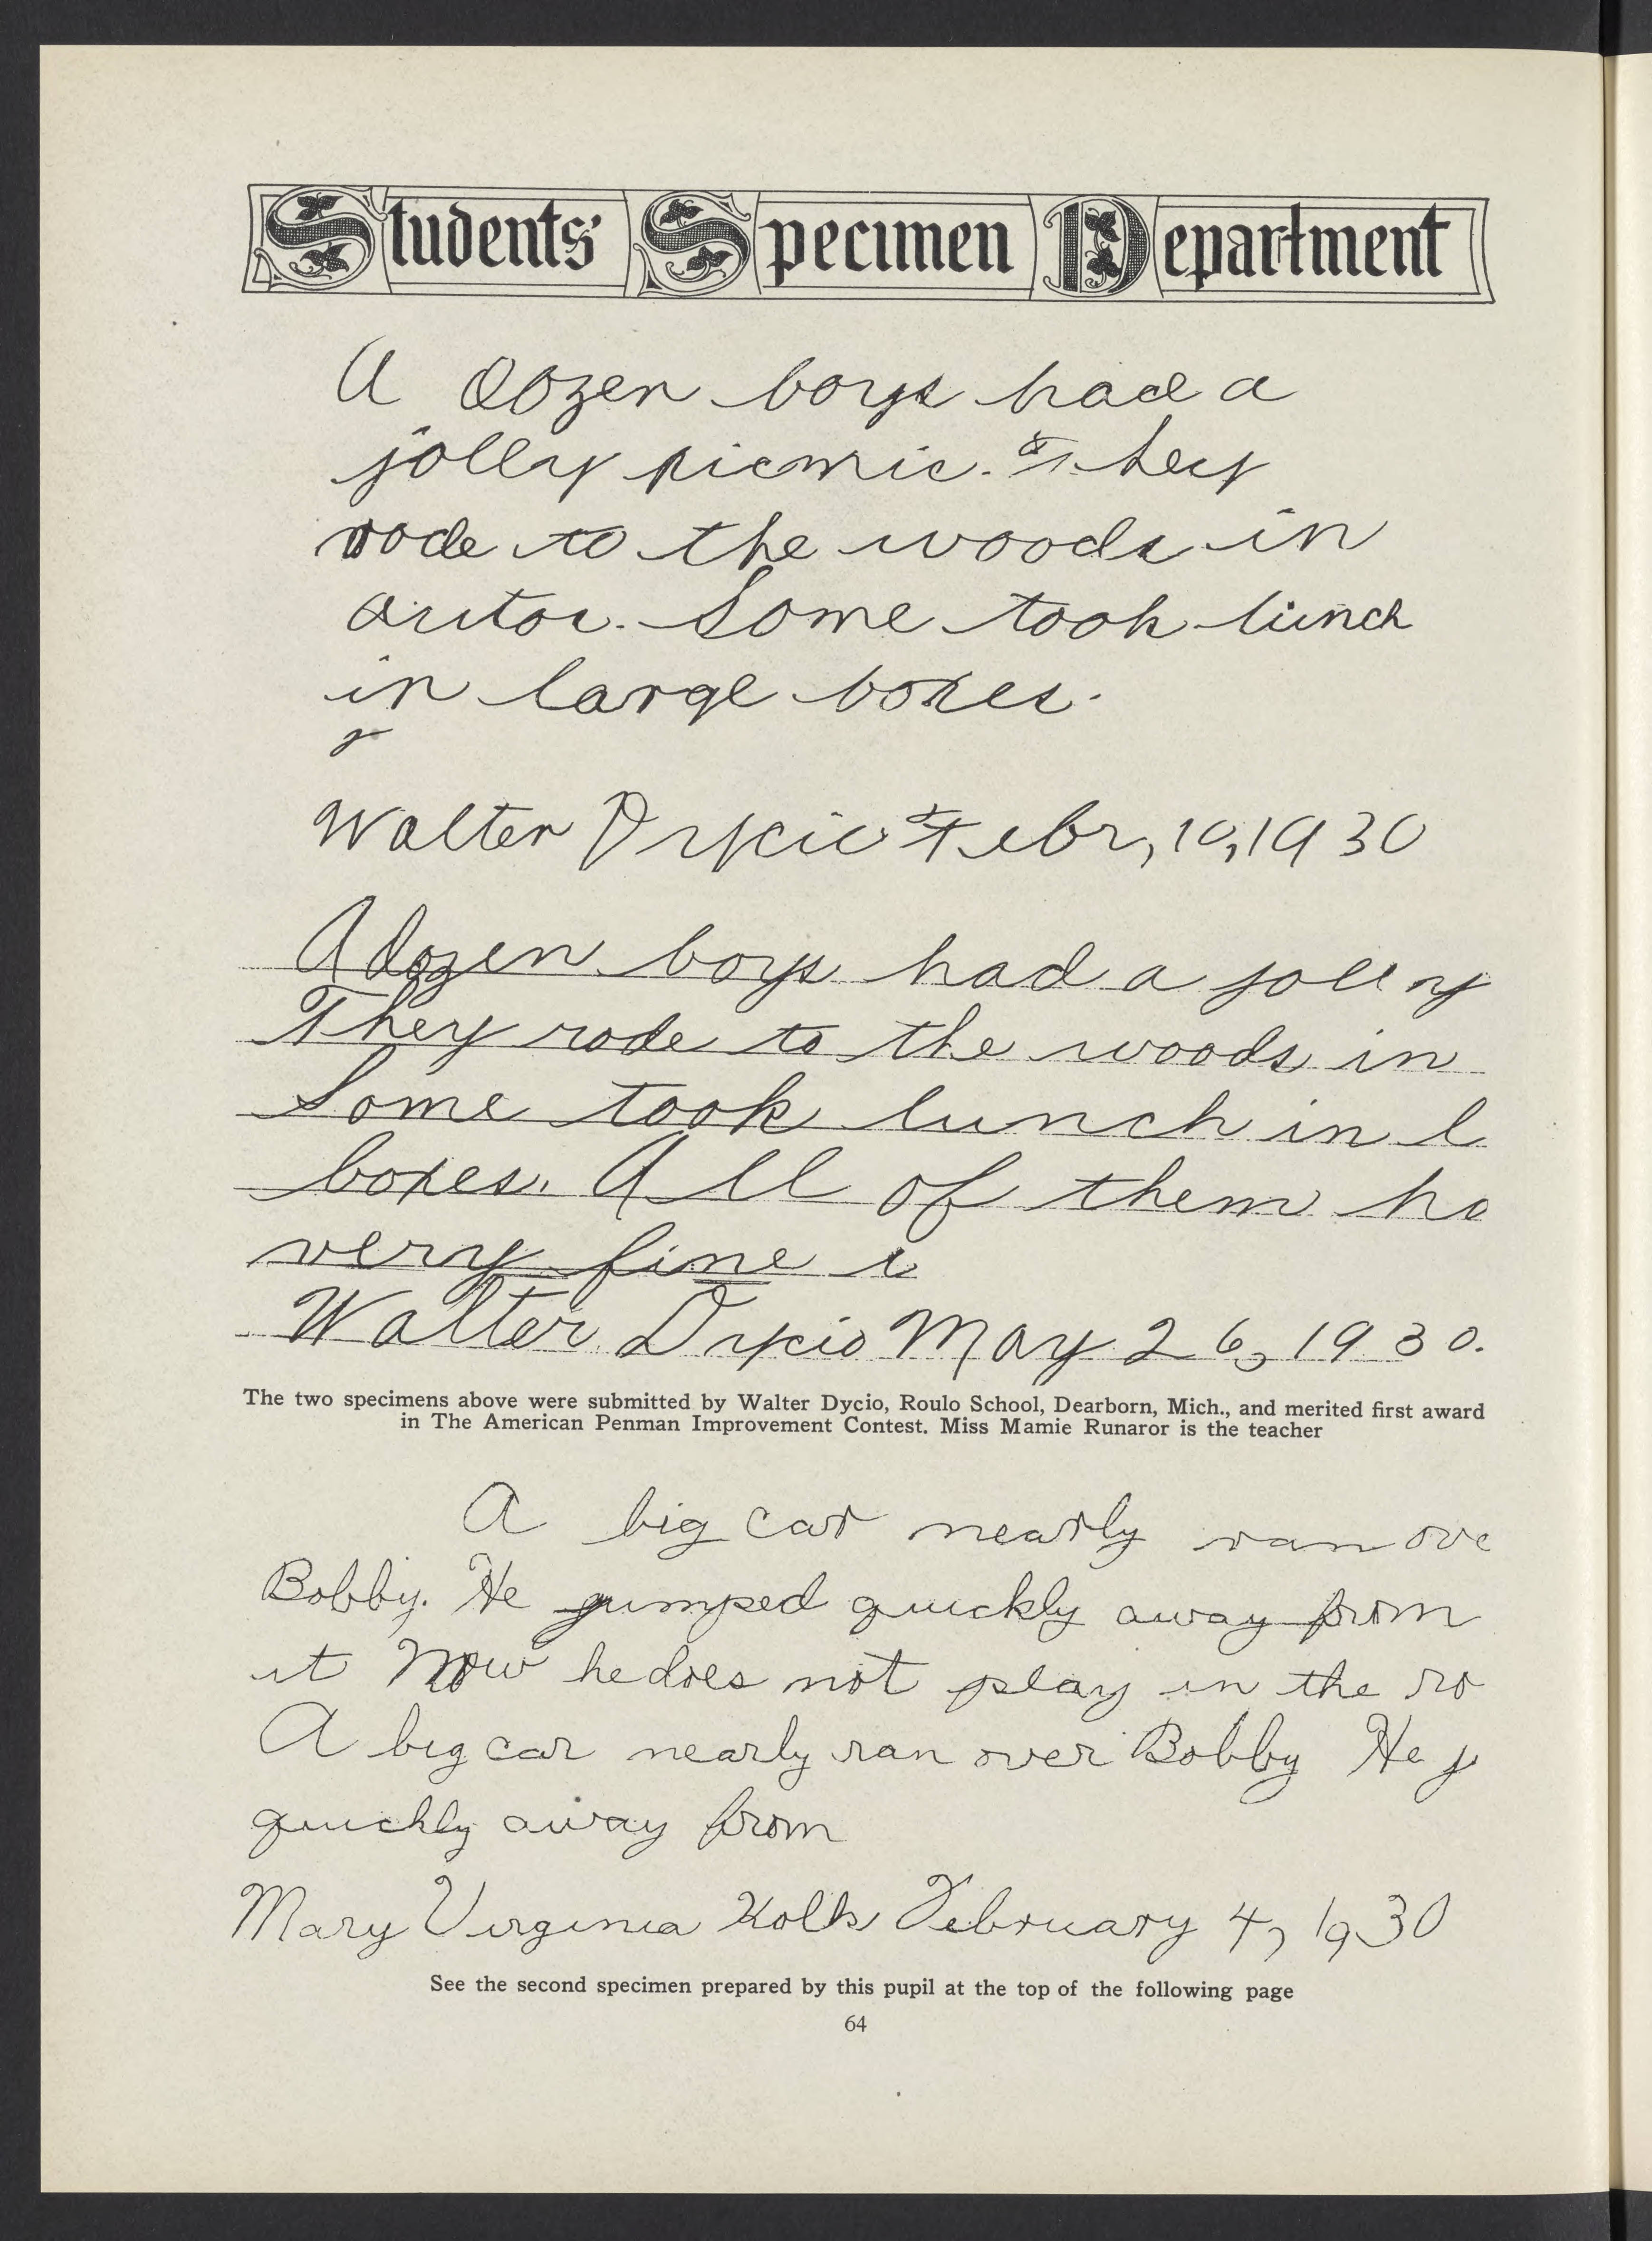 Students' Specimen Department
A dozen boys had a
jolly picnic. They
rode to the woods in
autos. Some took lunch
in large boxes.
Walter Dycio Febr, 10, 1930
A dozen boys had a jolly
They rode to the woods in
Some took lunch in l
boxes. All of them ha
very fine
Walter Dycio May 26, 1930.
The two specimens above were submitted by Walter Dycio, Roulo School, Dearborn, Mich., and merited first award
in The American Penman Improvement Contest. Miss Mamie Runaror is the teacher
A big car nearly ran ove
Bobby. He jumped quickly away from
it Now he does not play in the ro
A big car nearly ran over Bobby He j
quickly away from
Mary Virginia Kolk February 4, 1930
See the second specimen prepared by this pupil at the top of the following page
64